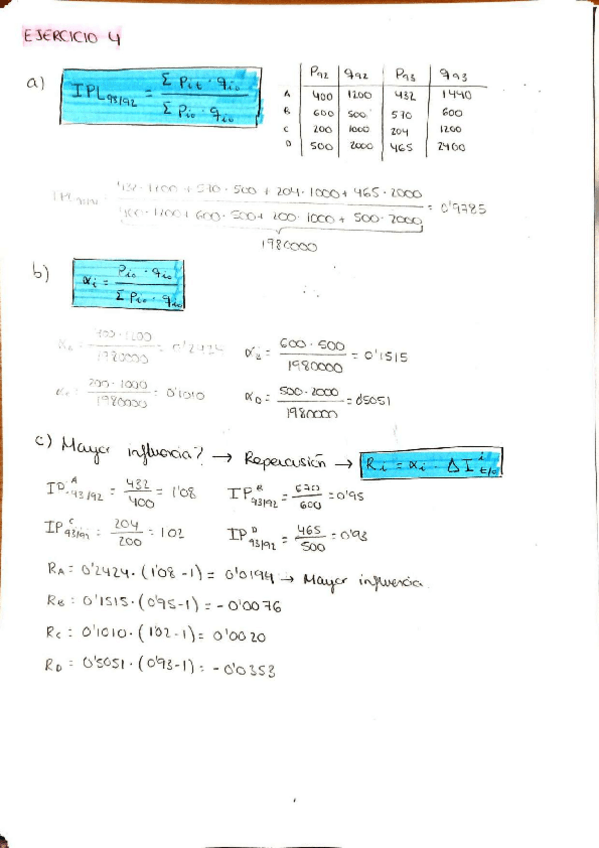 EJERCICIO 4
a) IPL93/92 = Σ Pit · qi0 / Σ Pi0 · qi0
P92 q92 P93 q93
A 400 1200 432 1440
B 600 500 570 600
C 200 1000 204 1200
D 500 2000 465 2400
432·1200 + 570·500 + 204·1000 + 465·2000 / 400·1200 + 600·500 + 200·1000 + 500·2000 = 0'9785
1980000
b) αi = Pi0 · qi0 / Σ Pi0 · qi0
400·1200 / 1980000 = 0'2424 αB = 600·500 / 1980000 = 0'1515
200·1000 / 1980000 = 0'1010 αD = 500·2000 / 1980000 = 0'5051
c) Mayor influencia? → Repercusión → Ri = αi · ΔI i t/0
IP A 93/92 = 432 / 400 = 1'08 IP B 93/92 = 570 / 600 = 0'95
IP C 93/92 = 204 / 200 = 1'02 IP D 93/92 = 465 / 500 = 0'93
RA = 0'2424 · (1'08 -1) = 0'0194 → Mayor influencia.
RB = 0'1515 · (0'95-1) = -0'0076
RC = 0'1010 · (1'02-1) = 0'0020
RD = 0'5051 · (0'93-1) = -0'0353